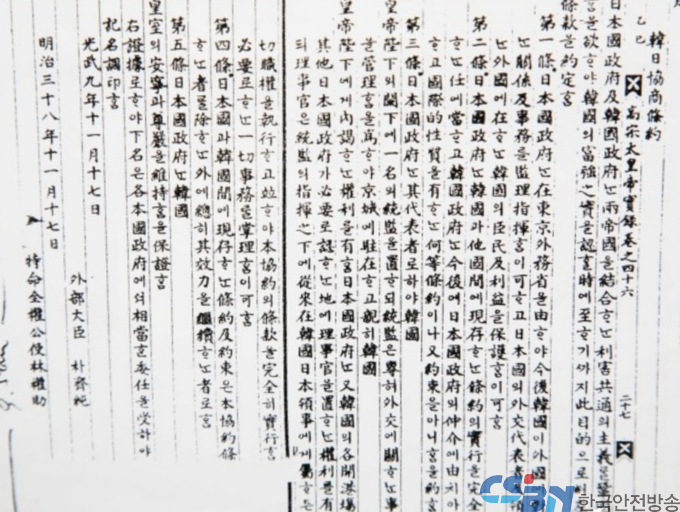 韓日協商條約
乙巳 高宗太皇帝實錄卷之四十六 二十七
日本國政府及韓國政府ᄂᆞᆫ兩帝國을結合ᄒᆞᄂᆞᆫ利害共通의主義를鞏
을欲ᄒᆞ야韓國의富強之實을認ᄒᆞᆯ時에至ᄒᆞ기ᄭᆞ지此目的으로
條款을約定홈
第一條日本國政府ᄂᆞᆫ在東京外務省을由ᄒᆞ야今後韓國이外國
ᄂᆞᆫ關係及事務를監理指揮홈이可ᄒᆞ고日本國의外交代表者
ᄂᆞᆫ外國에在ᄒᆞᄂᆞᆫ韓國의臣民及利益을保護홈이可홈
第二條日本國政府ᄂᆞᆫ韓國과他國間에現存ᄒᆞᄂᆞᆫ條約의實行을完全
ᄒᆞᄂᆞᆫ任에當ᄒᆞ고韓國政府ᄂᆞᆫ今後에日本國政府의仲介에由치아
ᄒᆞ고國際的性質을有ᄒᆞᄂᆞᆫ何等條約이나又約束을아니홈을約홈
第三條日本國政府ᄂᆞᆫ其代表者로ᄒᆞ야韓國
皇帝陛下의闕下에一名의統監을置ᄒᆞ되統監은專혀外交에關ᄒᆞᄂᆞᆫ事
을管理홈을爲ᄒᆞ야京城에駐在ᄒᆞ고親히韓國
皇帝陛下에게內謁ᄒᆞᄂᆞᆫ權利를有홈日本國政府ᄂᆞᆫ又韓國의各開港場
其他日本國政府가必要로認ᄒᆞᄂᆞᆫ地에理事官을置ᄒᆞᄂᆞᆫ權利를有
되理事官은統監의指揮之下에從來在韓國日本領事에게屬ᄒᆞ든
切職權을執行ᄒᆞ고並ᄒᆞ야本協約의條款을完全히實行홈
必要로ᄒᆞᄂᆞᆫ一切事務를掌理홈이可홈
第四條日本國과韓國間에現存ᄒᆞᄂᆞᆫ條約及約束은本協約條
ᄒᆞᄂᆞᆫ者를除ᄒᆞᄂᆞᆫ外에總히其效力을繼續ᄒᆞᄂᆞᆫ者로홈
第五條日本國政府ᄂᆞᆫ韓國
皇室의安寧과尊嚴을維持홈을保證홈
右證據로ᄒᆞ야下名은各本國政府에셔相當ᄒᆞᆫ委任을受ᄒᆞ야
記名調印홈
光武九年十一月十七日
外部大臣 朴齊純
明治三十八年十一月十七日
特命全權公使林權助
CSBN 한국안전방송